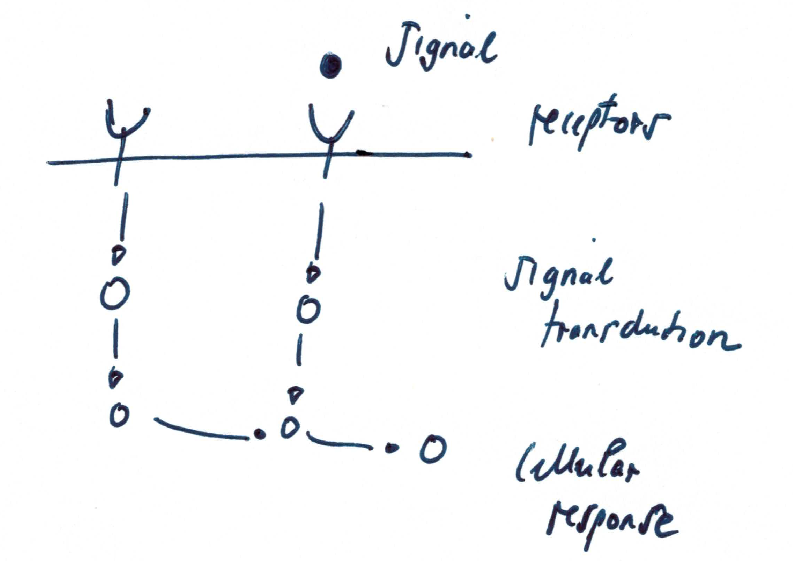 Signal
receptors
Signal
transduction
Cellular
response